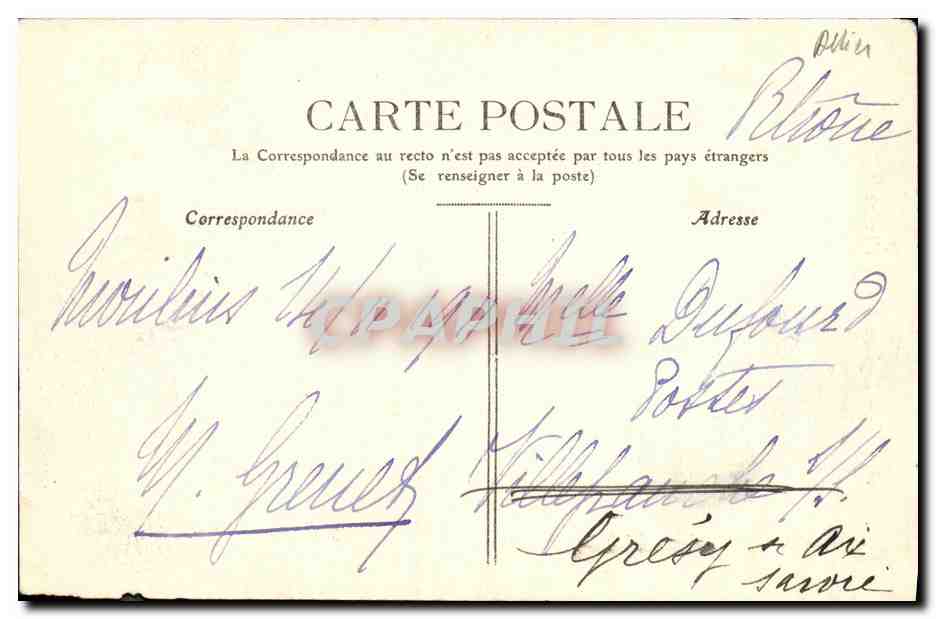 Allier
Rhône
CARTE POSTALE
La Correspondance au recto n'est pas acceptée par tous les pays étrangers
(Se renseigner à la poste)
Correspondance
Adresse
Moulins
M. Grenet
CPAPHIL
Melle Dufourd
Postes
Villefranche s/s.
Grésy s Aix
Savoie